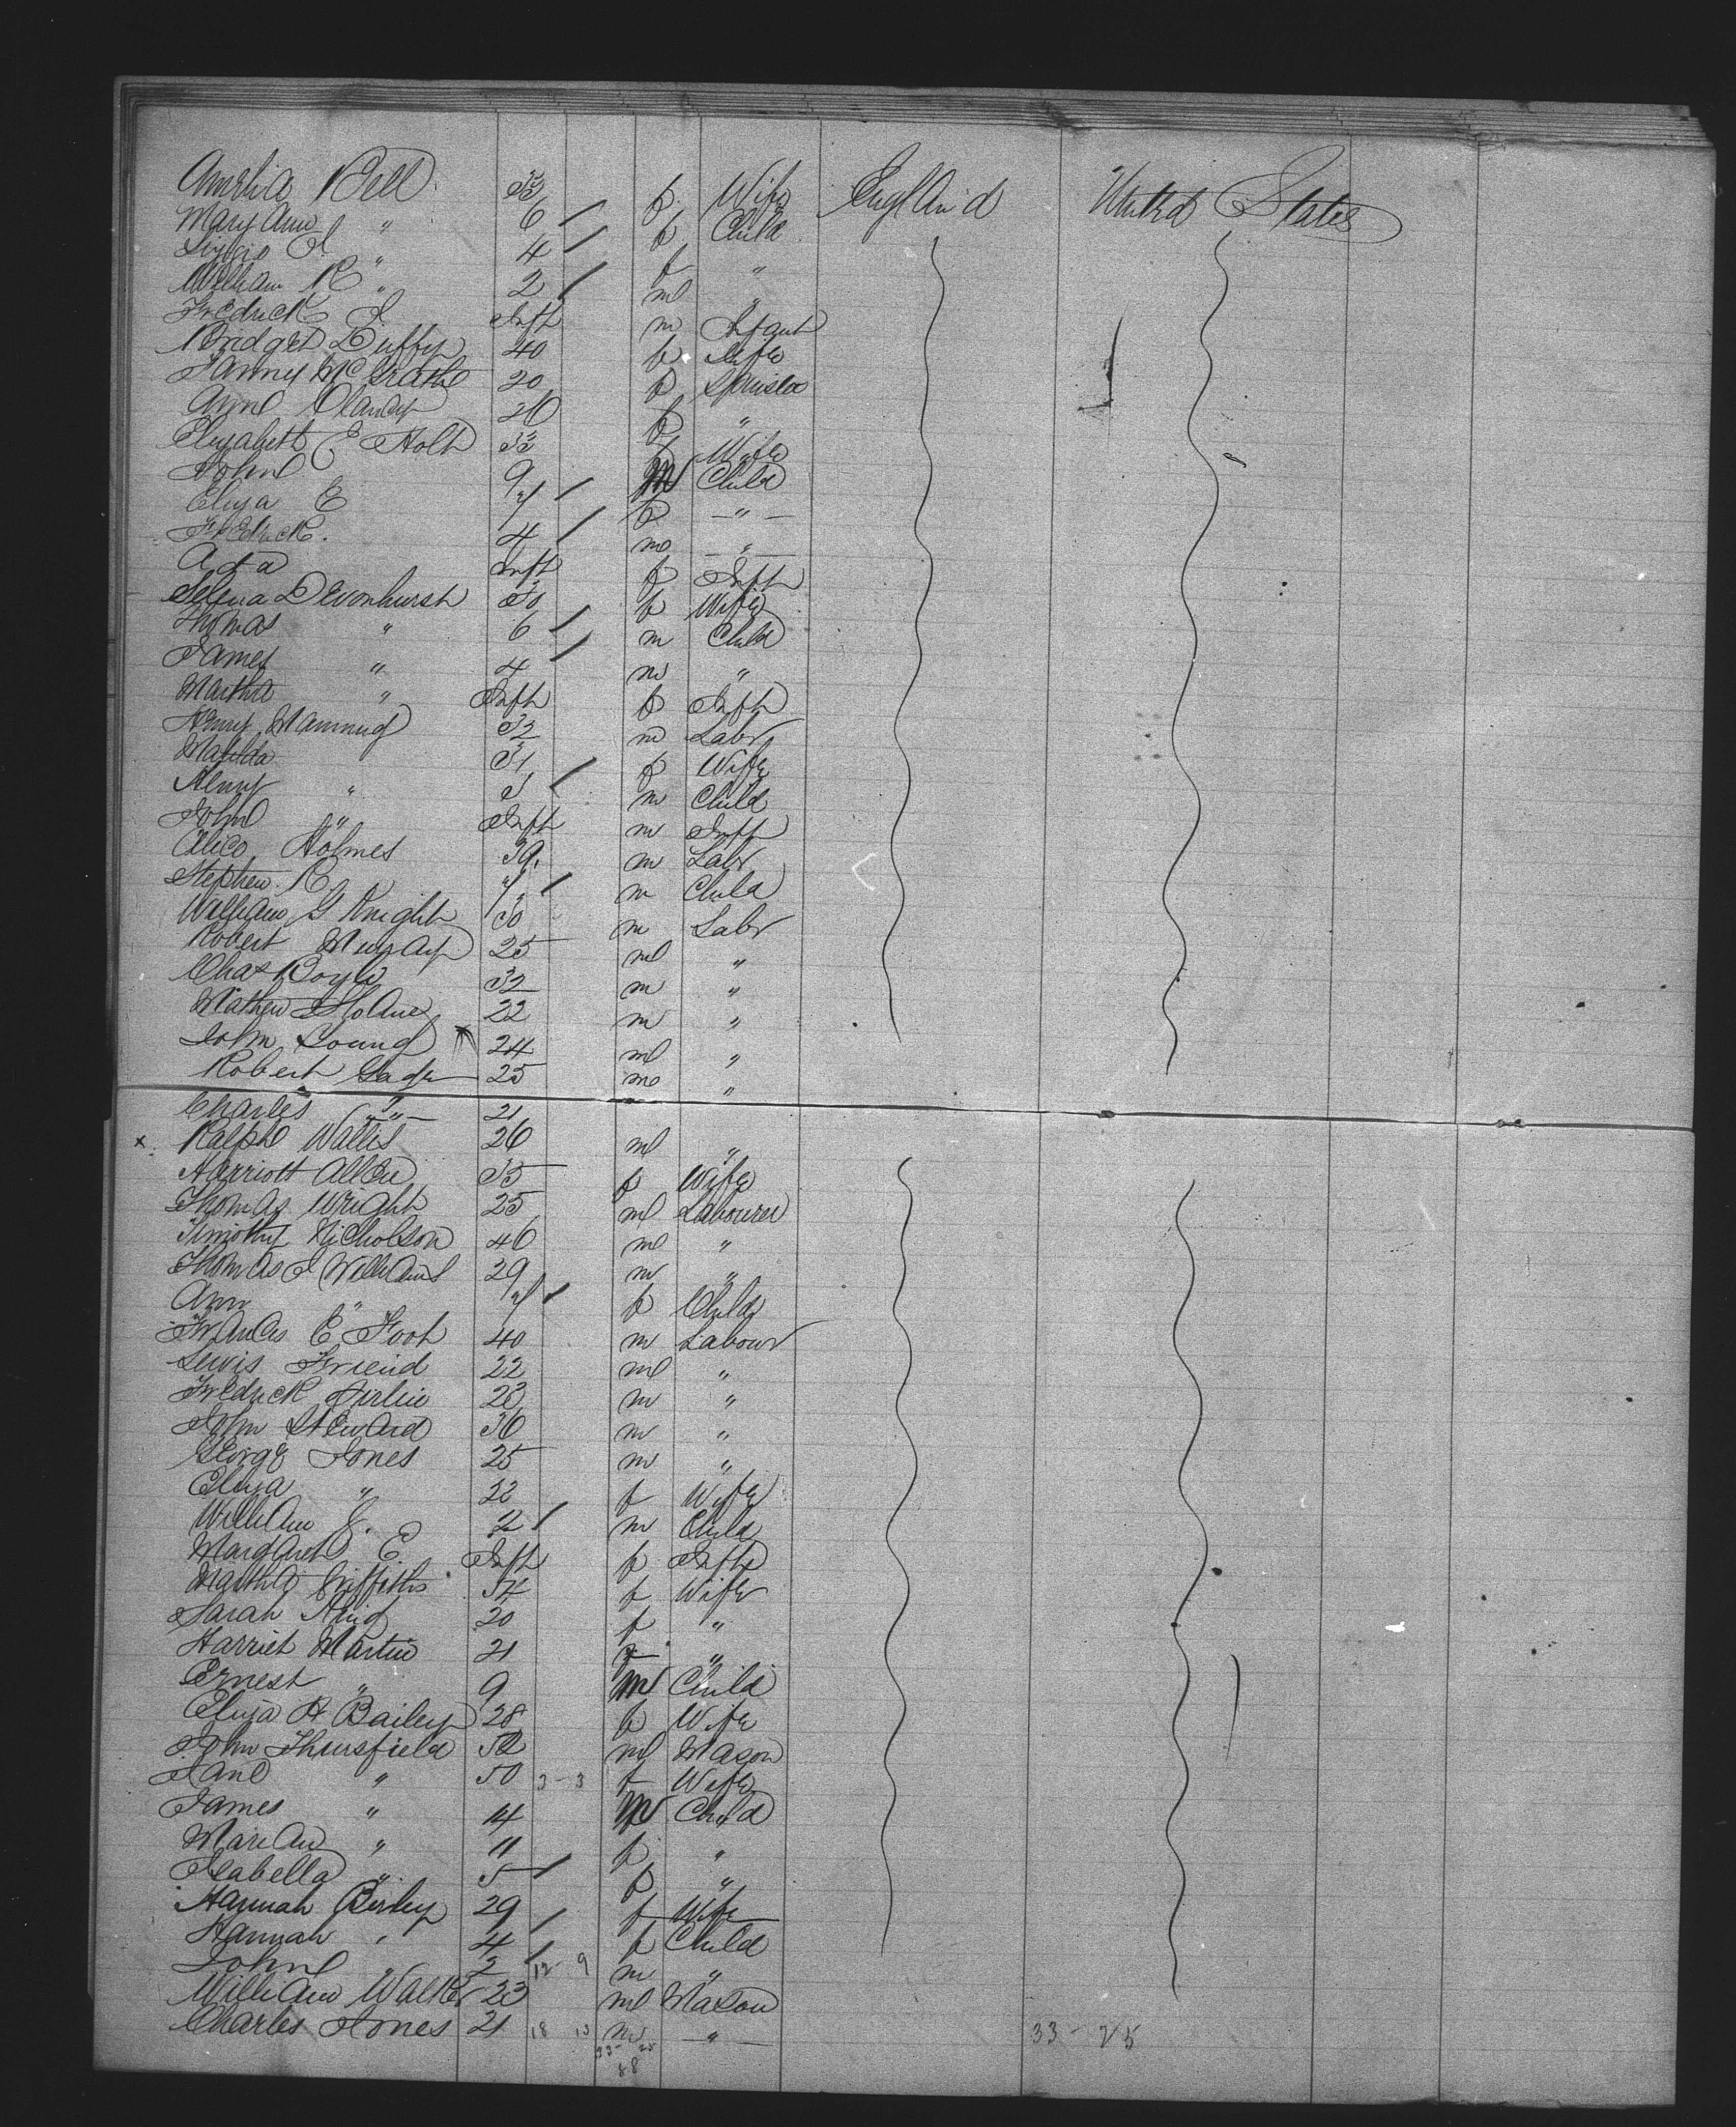 Amelia Bell 32 f Wife England United States
Mary Ann " 6 f Child
Lizzie J " 4 f "
William R " 2 m "
Fredrick J Inft m Infant
Bridget Duffy 40 f Wife
Fanny McGrath 20 f Spinster
Anne Clancy 20 f "
Elizabeth E Holt 32 f Wife
John 9 M Child
Eliza E 7 f "
Fredrick. 4 m "
Ada Inft f Inft
Selena Devonhursh 30 f Wife
Thomas " 6 m Child
James " 4 m "
Martha " Inft f Inft
Henry Manning 32 m Labr
Matilda 31 f Wife
Henry " 3 m Child
John " Inft m Inft
Alico Holmes 39 m Labr
Stephen R 7 m Child
William G Knight 30 m Labr
Robert Murray 25 m "
Chas Boyle 32 m "
Mathew 22 m "
John Young 24 m "
Robert 25 m "
Charles " 21
x Ralph Wallis 26 m "
Harriott Allen 35 f Wife
Thomas Wright 25 m Labourer
Timothy Nicholson 46 m "
Thomas J Williams 29 m "
Ann " 7 f Child
Frances E Foot 40 m Labour
Lewis Friend 22 m "
Fredrick 23 m "
John Steward 36 m "
George Jones 25 m "
Eliza " 22 f Wife
William J. 2 m Child
Margaret E Inft f Inft
Martha Griffiths 34 f Wife
Sarah King 20 f "
Harriet Martin 21 f "
Ernest " 9 M Child
Eliza A Bailey 28 f Wife
John Thursfield 52 m Mason
Jane " 50 3 - 3 f Wife
James " 14 M Child
Marian " 11 f "
Isabella " 5 f "
Hannah Birley 29 f Wife
Hannah " 4 f Child
John " 2 12 9 m "
William Walker 23 m Mason
Charles Jones 21 18 13 m " 33 - 25
33 - 25
88